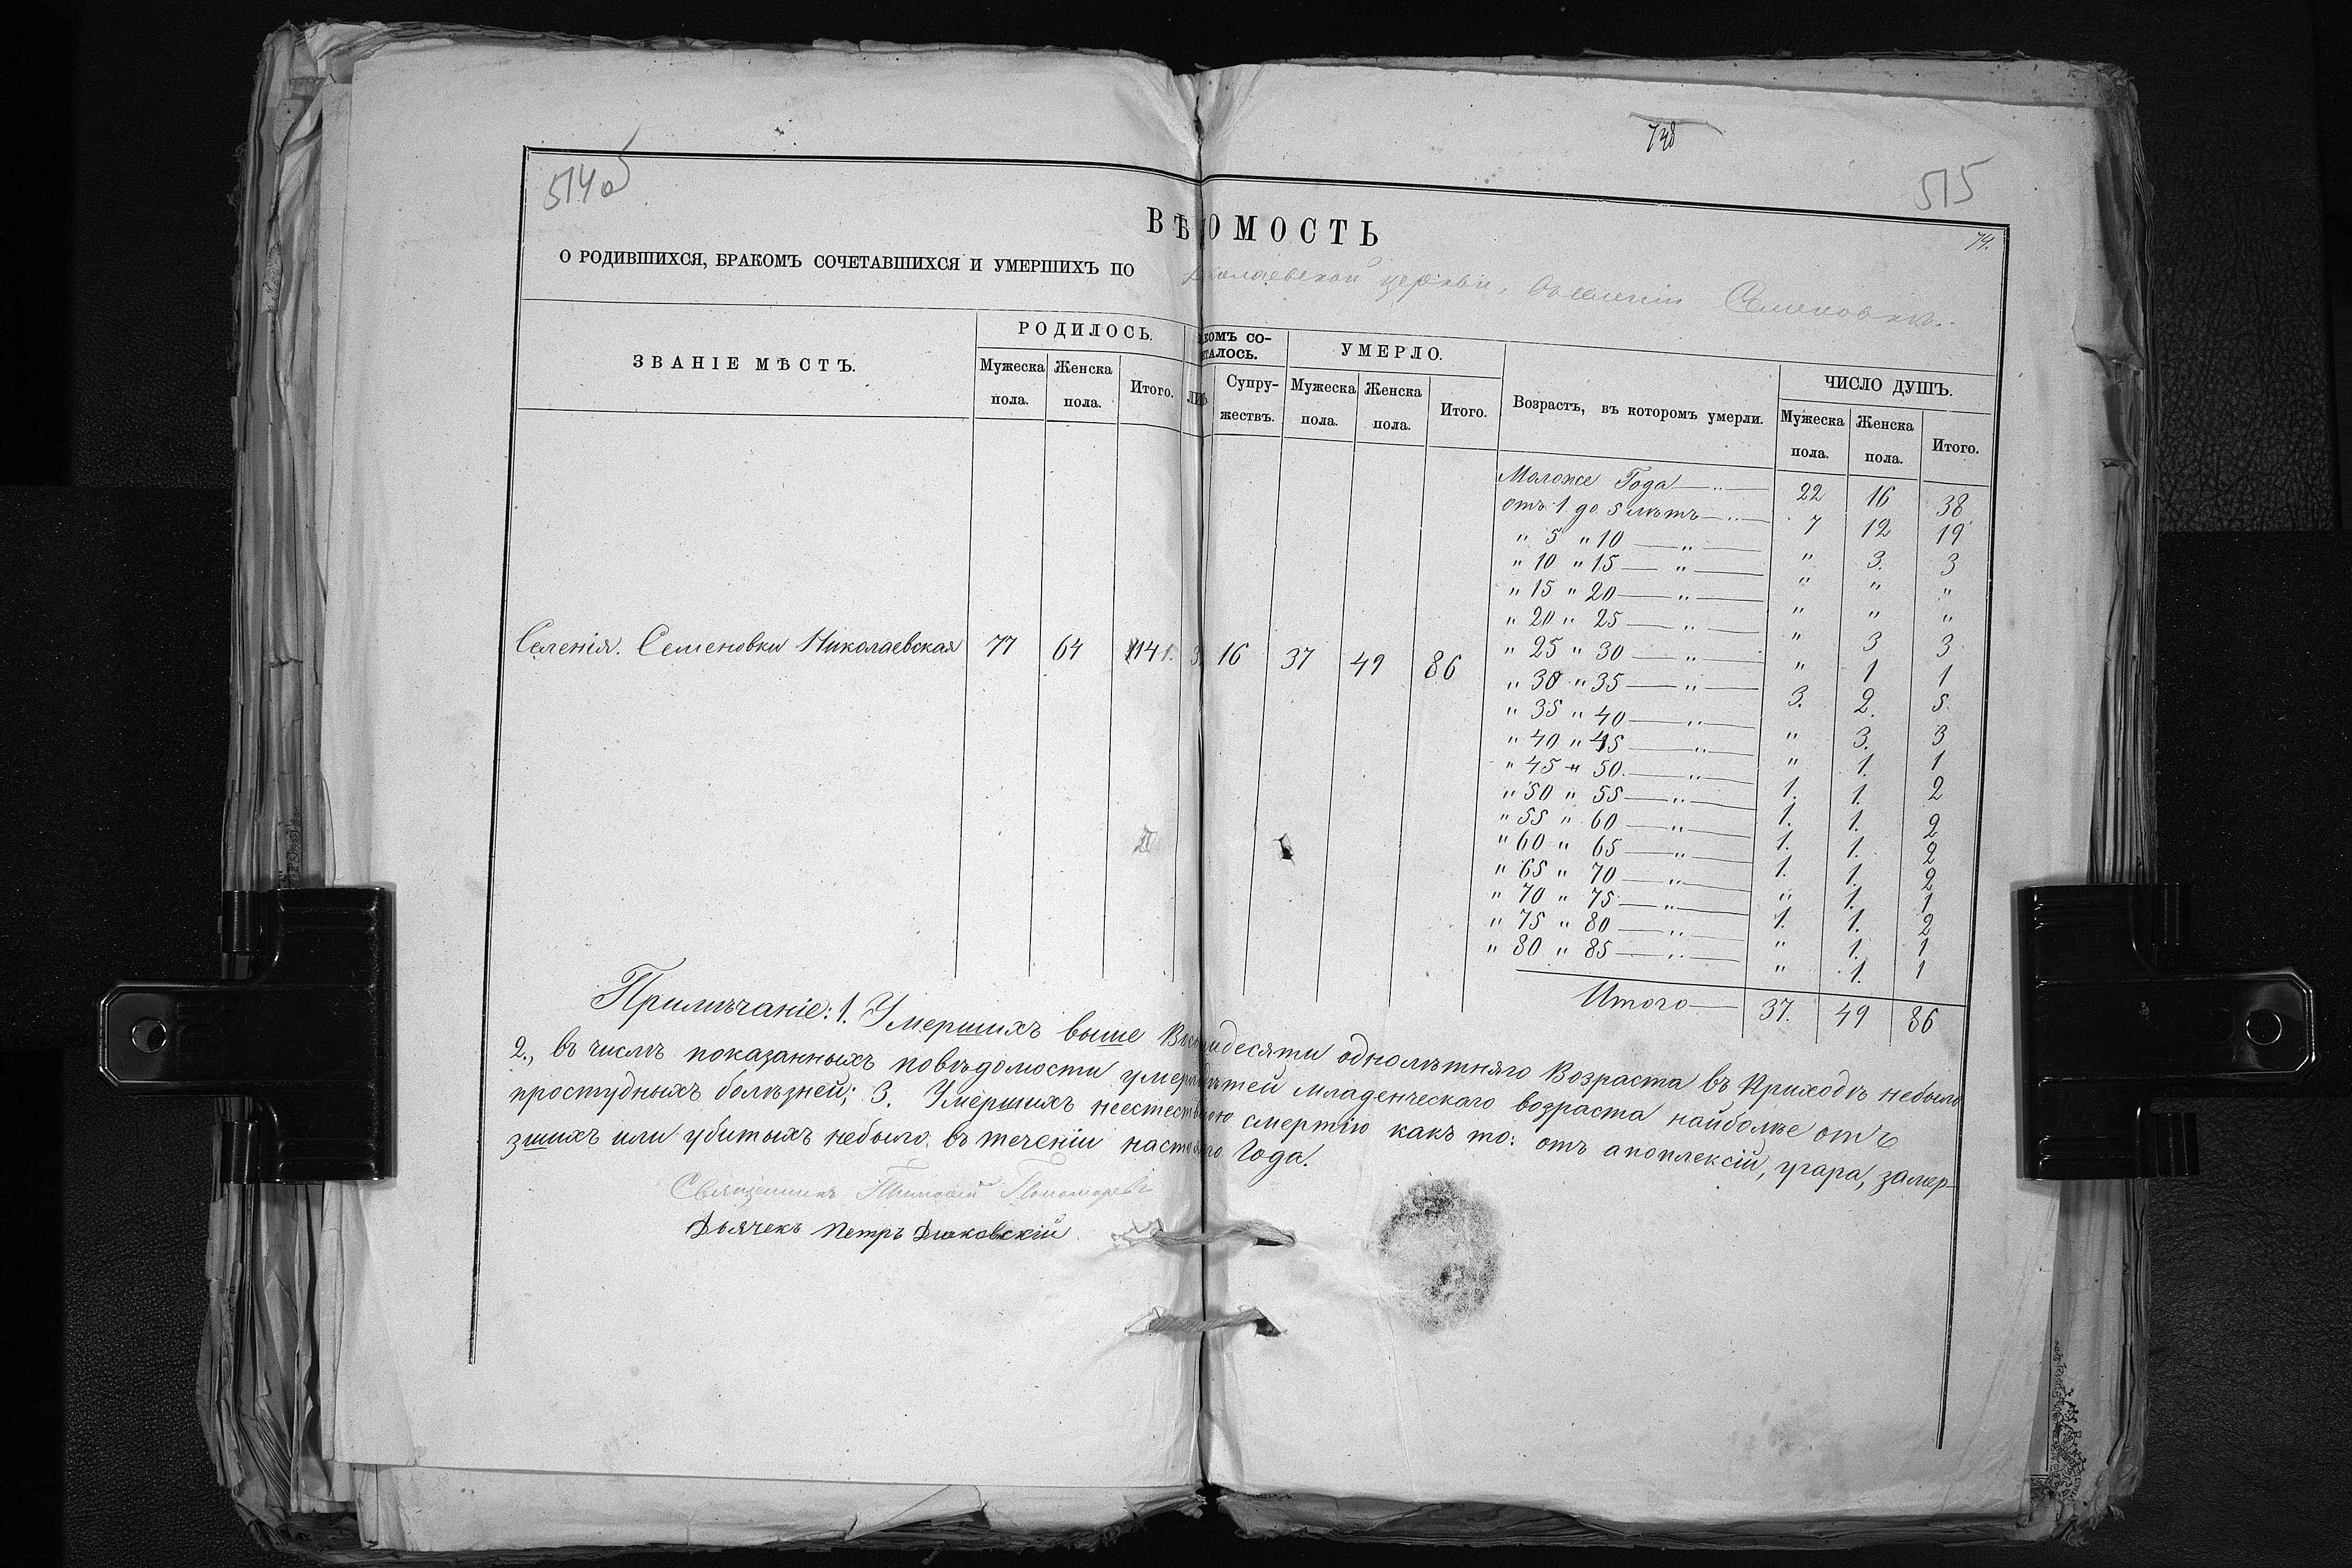 514 об
748
515
74.
ВѢДОМОСТЬ
О РОДИВШИХСЯ, БРАКОМЪ СОЧЕТАВШИХСЯ И УМЕРШИХЪ ПО николаевской церкви, Селенія Семеновки.
ЗВАНІЕ МѢСТЪ.
РОДИЛОСЬ.
Мужеска пола.
Женска пола.
Итого.
КОМЪ СО-
ТАЛОСЬ.
Супру-
жествъ.
УМЕРЛО.
Мужеска пола.
Женска пола.
Итого.
Возрастъ, въ которомъ умерли.
ЧИСЛО ДУШЪ.
Мужеска пола.
Женска пола.
Итого.
Селенія. Семеновки Николаевская 77 64 141. 3 16 37 49 86
Моложе Года — " — 22 16 38
отъ 1 до 5 лѣтъ — " — 7 12 19
" 5 " 10 — " — " 3. 3
" 10 " 15 — " — " " "
" 15 " 20 — " — " " "
" 20 " 25 — " — " 3 3
" 25 " 30 — " — " 1 1
" 30 " 35 — " — 3. 2. 5
" 35 " 40 — " — " 3. 3
" 40 " 45 — " — " 1. 1
" 45 " 50. — " — 1. 1. 2
" 50 " 55 — " — 1. 1. 2
" 55 " 60 — " — 1. 1. 2
" 60 " 65 — " — 1. 1. 2
" 65 " 70 — " — " 1. 1
" 70 " 75 — " — 1. 1. 2
" 75 " 80 — " — " 1. 1
" 80 " 85 — " — " 1. 1
Итого — 37. 49 86
Примѣчаніе: 1. Умершихъ выше Восмидесяти однолѣтняго Возраста въ Приходѣ небыло
2., въ числѣ показанныхъ повѣдомости умерло дѣтей младенческаго возраста наиболѣе отъ
простудныхъ болѣзней; 3. Умершихъ неестественою смертію какъ то: отъ апоплексіи, угара, замер-
зшихъ или убитыхъ небыло въ теченіи настоящаго Года.
Священникъ Тимофей Пономаревъ
Дьячекъ Петръ